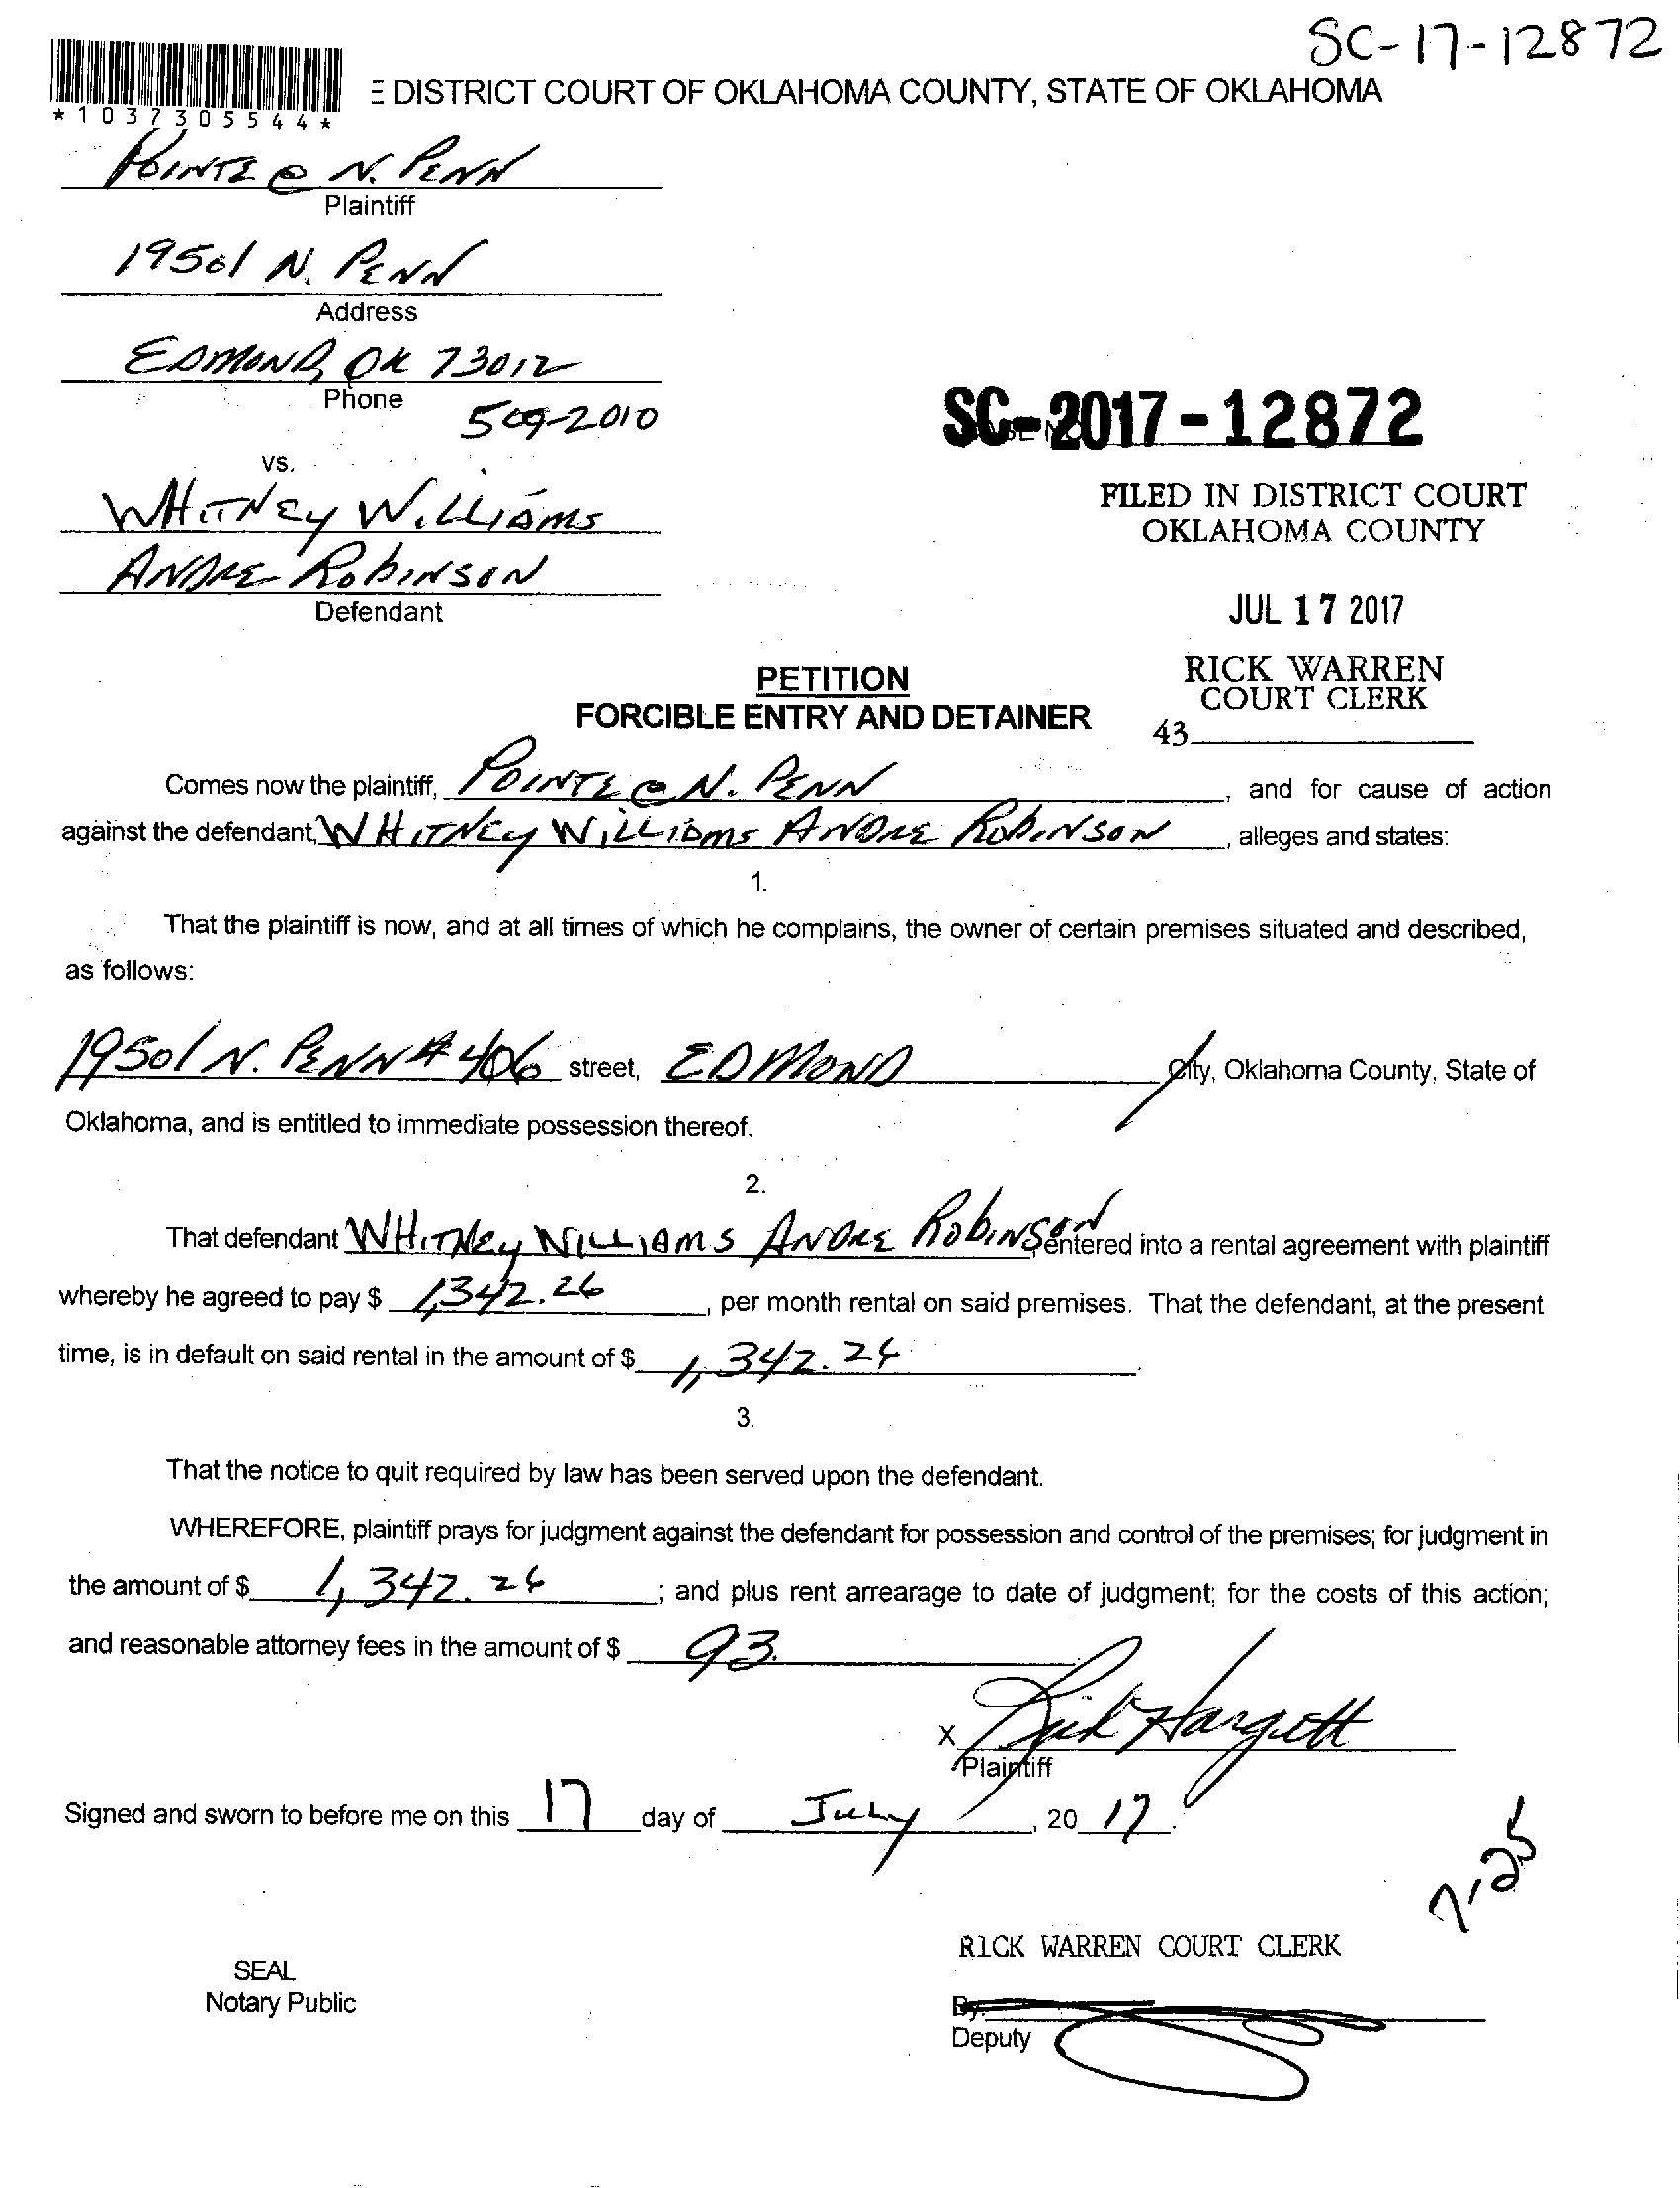 SC-17-12872
*1037305544*
E DISTRICT COURT OF OKLAHOMA COUNTY, STATE OF OKLAHOMA
POINTE @ N. PENN
Plaintiff
19501 N. PENN
Address
EDMOND, OK 73012
Phone
509-2010
SC-2017-12872
vs.
FILED IN DISTRICT COURT
OKLAHOMA COUNTY
WHITNEY WILLIAMS
ANDRE ROBINSON
Defendant
JUL 17 2017
RICK WARREN
COURT CLERK
43
PETITION
FORCIBLE ENTRY AND DETAINER
Comes now the plaintiff, POINTE @ N. PENN, and for cause of action
against the defendant, WHITNEY WILLIAMS ANDRE ROBINSON, alleges and states:
1.
That the plaintiff is now, and at all times of which he complains, the owner of certain premises situated and described,
as follows:
19501 N. PENN # 406 street, EDMOND City, Oklahoma County, State of
Oklahoma, and is entitled to immediate possession thereof.
2.
That defendant WHITNEY WILLIAMS ANDRE ROBINSON entered into a rental agreement with plaintiff
whereby he agreed to pay $ 1,342.26, per month rental on said premises. That the defendant, at the present
time, is in default on said rental in the amount of $ 1,342.26.
3.
That the notice to quit required by law has been served upon the defendant.
WHEREFORE, plaintiff prays for judgment against the defendant for possession and control of the premises; for judgment in
the amount of $ 1,342.26; and plus rent arrearage to date of judgment; for the costs of this action;
and reasonable attorney fees in the amount of $ 93.
X Rick Hargett
Plaintiff
Signed and sworn to before me on this 17 day of July, 20 17.
7,25
RICK WARREN COURT CLERK
SEAL
Notary Public
By:
Deputy